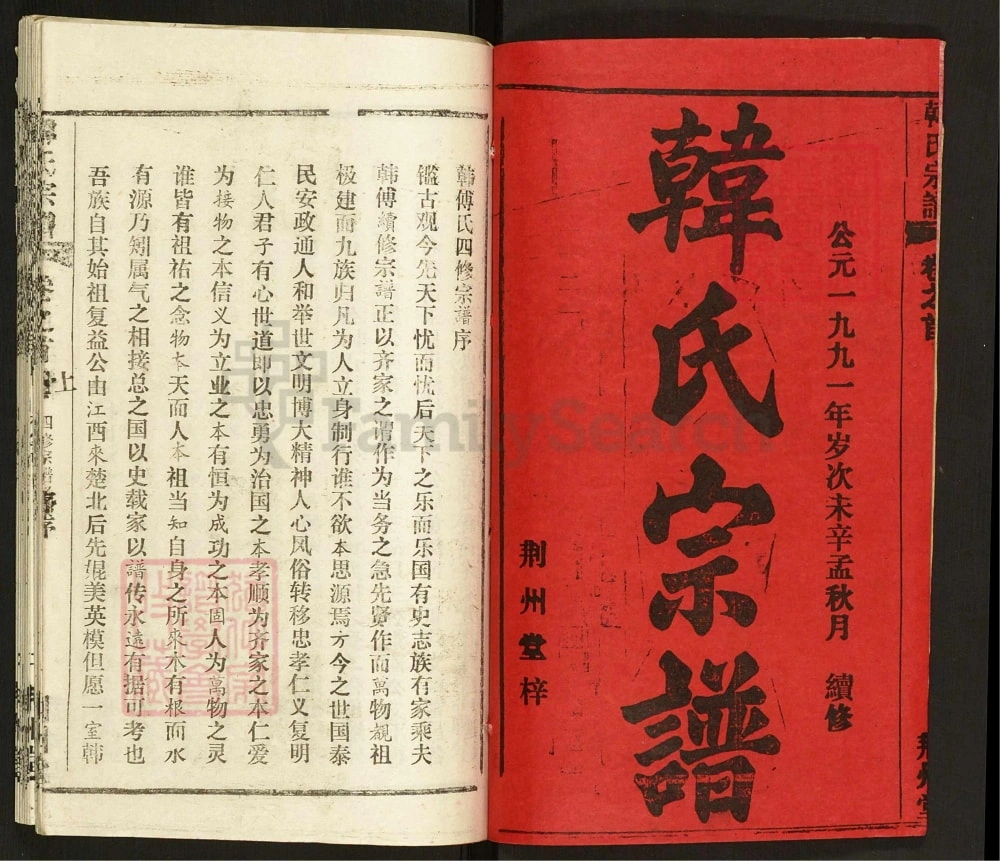 韩氏宗譜
卷之首
荆州堂
公元一九九一年岁次未辛孟秋月 續修
韓氏宗譜
荆州堂梓
韩傅氏四修宗譜序
鑑古观今先天下忧而忧后天下之乐而乐国有史志族有家乘夫
韩傅續修宗譜正以齐家之谓作为当务之急先贤作而萬物覩祖
极建而九族归凡为人立身制行谁不欲本思源焉方今之世国泰
民安政通人和举世文明博大精神人心风俗转移忠孝仁义复明
仁人君子有心世道即以忠勇为治国之本孝顺为齐家之本仁爱
为接物之本信义为立业之本有恒为成功之本固人为萬物之灵
谁皆有祖祐之念物本天而人本祖当知自身之所來木有根而水
有源乃矧属气之相接总之国以史载家以譜传永遠有据可考也
吾族自其始祖复益公由江西來楚北后先焜美英模但愿一室韩
上
四修宗譜序
FamilySearch